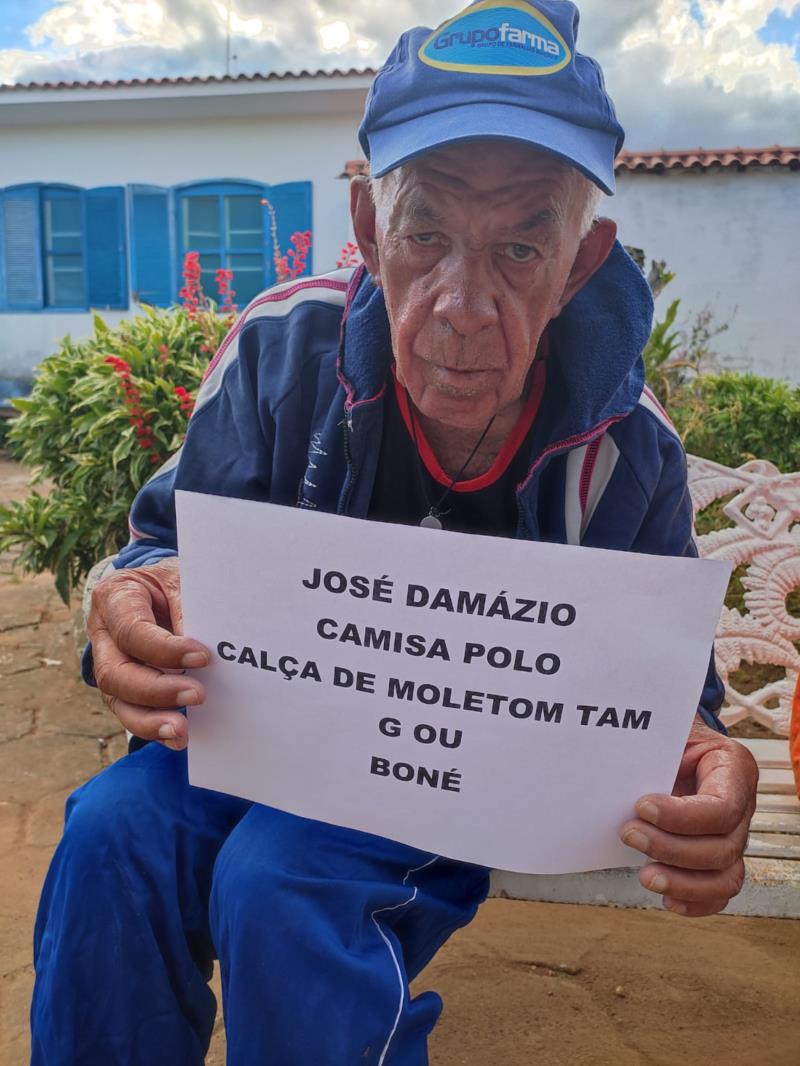 Grupofarma
JOSÉ DAMÁZIO
CAMISA POLO
CALÇA DE MOLETOM TAM
G OU
BONÉ